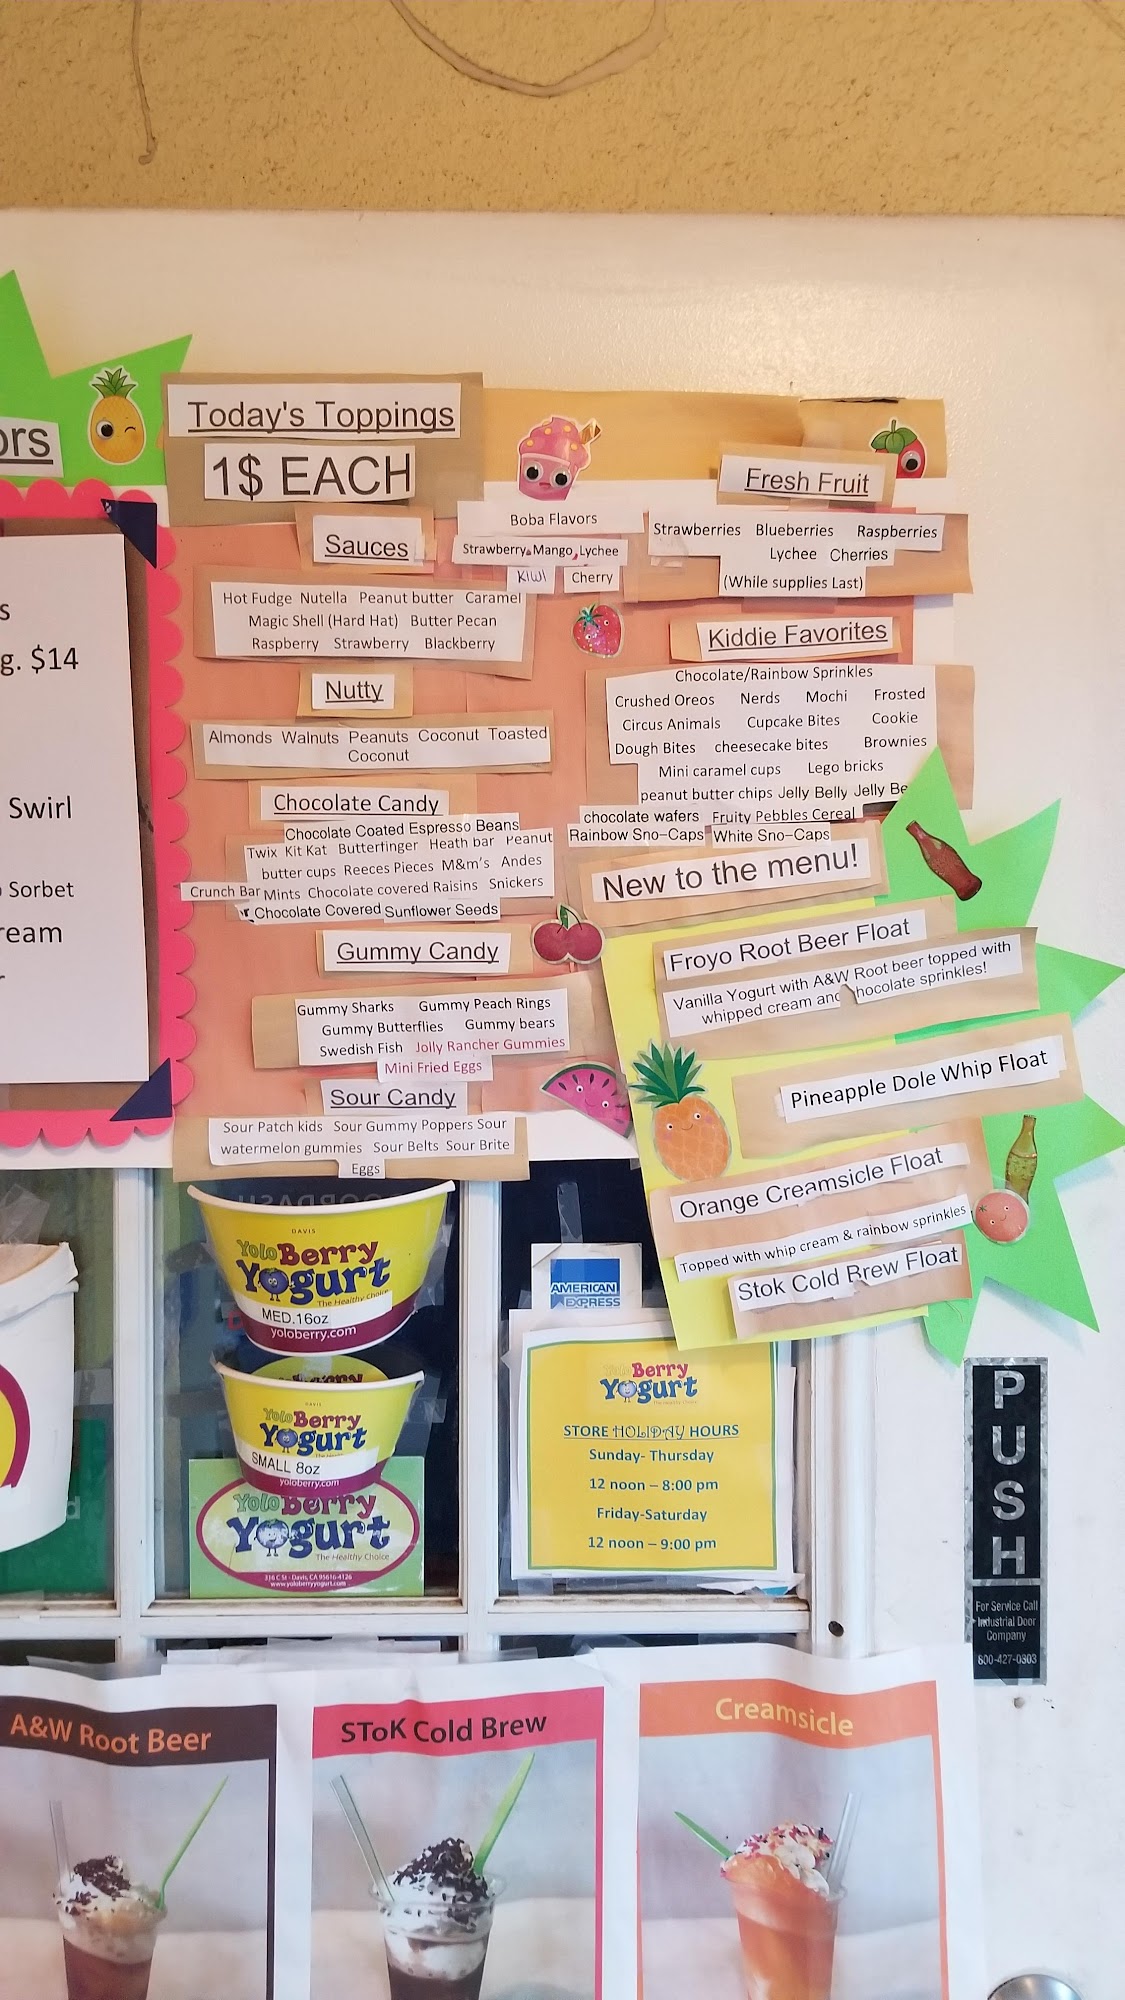 ors
s
g. $14
Swirl
Sorbet
ream
r
Today's Toppings
1$ EACH
Sauces
Hot Fudge Nutella Peanut butter Caramel
Magic Shell (Hard Hat) Butter Pecan
Raspberry Strawberry Blackberry
Nutty
Almonds Walnuts Peanuts Coconut Toasted
Coconut
Chocolate Candy
Chocolate Coated Espresso Beans
Twix Kit Kat Butterfinger Heath bar Peanut
butter cups Reeces Pieces M&m's Andes
Crunch Bar Mints Chocolate covered Raisins Snickers
Chocolate Covered Sunflower Seeds
Gummy Candy
Gummy Sharks Gummy Peach Rings
Gummy Butterflies Gummy bears
Swedish Fish Jolly Rancher Gummies
Mini Fried Eggs
Sour Candy
Sour Patch kids Sour Gummy Poppers Sour
watermelon gummies Sour Belts Sour Brite
Eggs
Boba Flavors
Strawberry Mango, Lychee
Kiwi Cherry
Fresh Fruit
Strawberries Blueberries Raspberries
Lychee Cherries
(While supplies Last)
Kiddie Favorites
Chocolate/Rainbow Sprinkles
Crushed Oreos Nerds Mochi Frosted
Circus Animals Cupcake Bites Cookie
Dough Bites cheesecake bites Brownies
Mini caramel cups Lego bricks
peanut butter chips Jelly Belly Jelly Be
chocolate wafers Fruity Pebbles Cereal
Rainbow Sno-Caps White Sno-Caps
New to the menu!
Froyo Root Beer Float
Vanilla Yogurt with A&W Root beer topped with
whipped cream and hocolate sprinkles!
Pineapple Dole Whip Float
Orange Creamsicle Float
Topped with whip cream & rainbow sprinkles
Stok Cold Brew Float
DOORDASH
DAVIS
Yolo Berry
Yogurt
The Healthy Choice
MED.16oz
yoloberry.com
DAVIS
Yolo Berry
Yogurt
SMALL 8oz
yoloberry.com
Yolo Berry
Yogurt
The Healthy Choice
316 C St - Davis, CA 95616-4126
www.yoloberryyogurt.com
AMERICAN
EXPRESS
Yolo Berry
Yogurt
The Healthy Choice
STORE HOLIDAY HOURS
Sunday- Thursday
12 noon – 8:00 pm
Friday-Saturday
12 noon – 9:00 pm
PUSH
For Service Call
Industrial Door
Company
800-427-0303
A&W Root Beer
SToK Cold Brew
Creamsicle